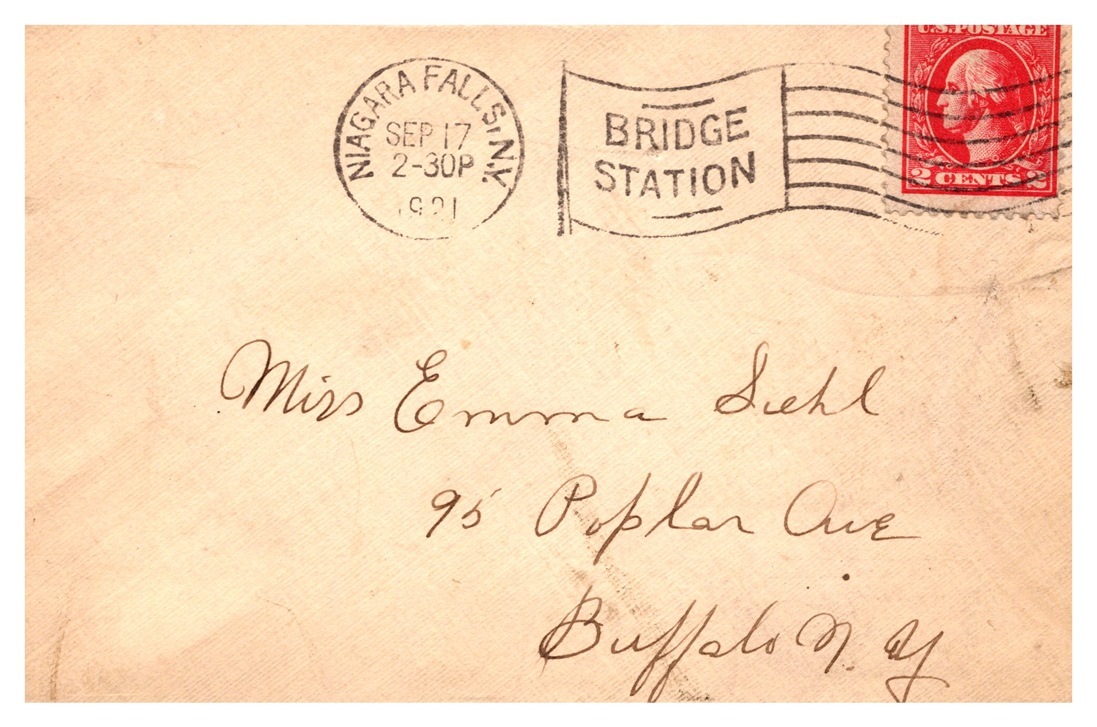 NIAGARA FALLS, N.Y.
SEP 17
2-30P
1921
BRIDGE
STATION
U.S. POSTAGE
2 CENTS 2
Miss Emma Siehl
95 Poplar Ave
Buffalo N. Y